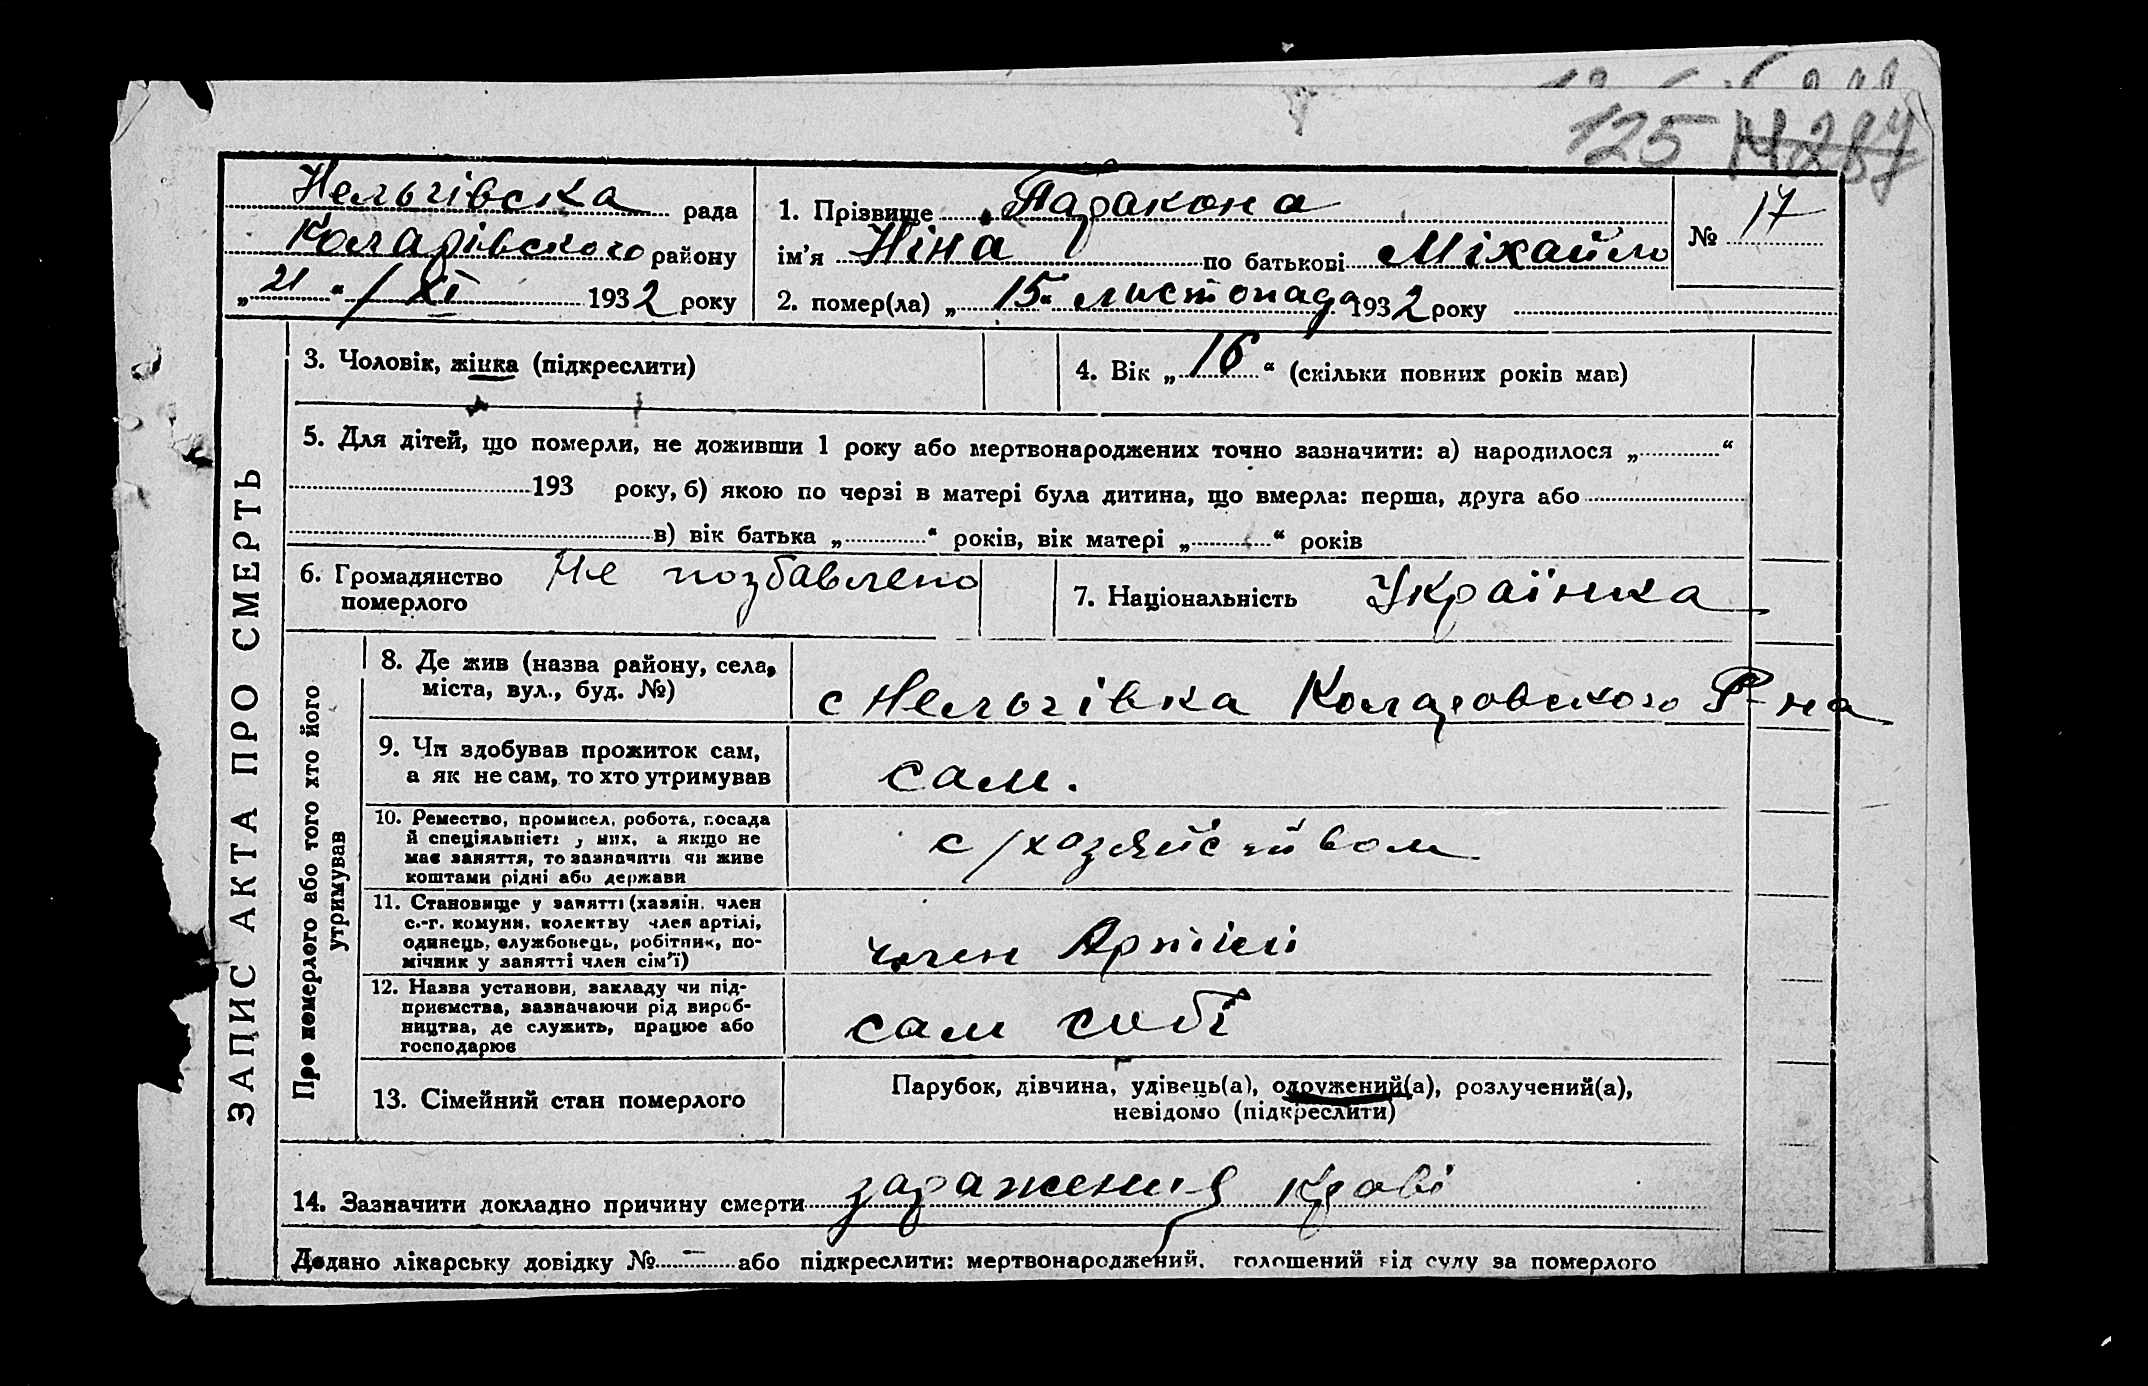 125
Нельгівська рада
Коларівського району
„21“ / XI 1932 року
1. Прізвище Таракона
ім’я Ніна по батькові Міхайло
2. помер(ла) „15“ листопада 1932 року
№ 17
ЗАПИС АКТА ПРО СМЕРТЬ
3. Чоловік, жінка (підкреслити)
4. Вік „16“ (скільки повних років мав)
5. Для дітей, що померли, не доживши 1 року або мертвонароджених точно зазначити: а) народилося „ “
193 року, б) якою по черзі в матері була дитина, що вмерла: перша, друга або
в) вік батька „ “ років, вік матері „ “ років
6. Громадянство померлого Не позбавлено
7. Національність Українка
Про померлого або того хто його утримував
8. Де жив (назва району, села,
міста, вул., буд. №)
с Нельгівка Коларовського Р-на
9. Чи здобував прожиток сам,
а як не сам, то хто утримував
сам.
10. Ремество, промисел, робота, посада
й спеціяльність у них, а якщо не
має заняття, то зазначити чи живе
коштами рідні або держави
с/хозяйством
11. Становище у занятті (хазяїн, член
с.-г. комуни, колективу член артілі,
одинець, службовець, робітник, по-
мічник у занятті член сім’ї)
член Артілі
12. Назва установи, закладу чи під-
приємства, зазначаючи рід вироб-
ництва, де служить, працює або
господарює
сам собі
13. Сімейний стан померлого
Парубок, дівчина, удівець(а), одружений(а), розлучений(а),
невідомо (підкреслити)
14. Зазначити докладно причину смерти заражения крові
Додано лікарську довідку № — або підкреслити: мертвонароджений, голошений від суду за померлого